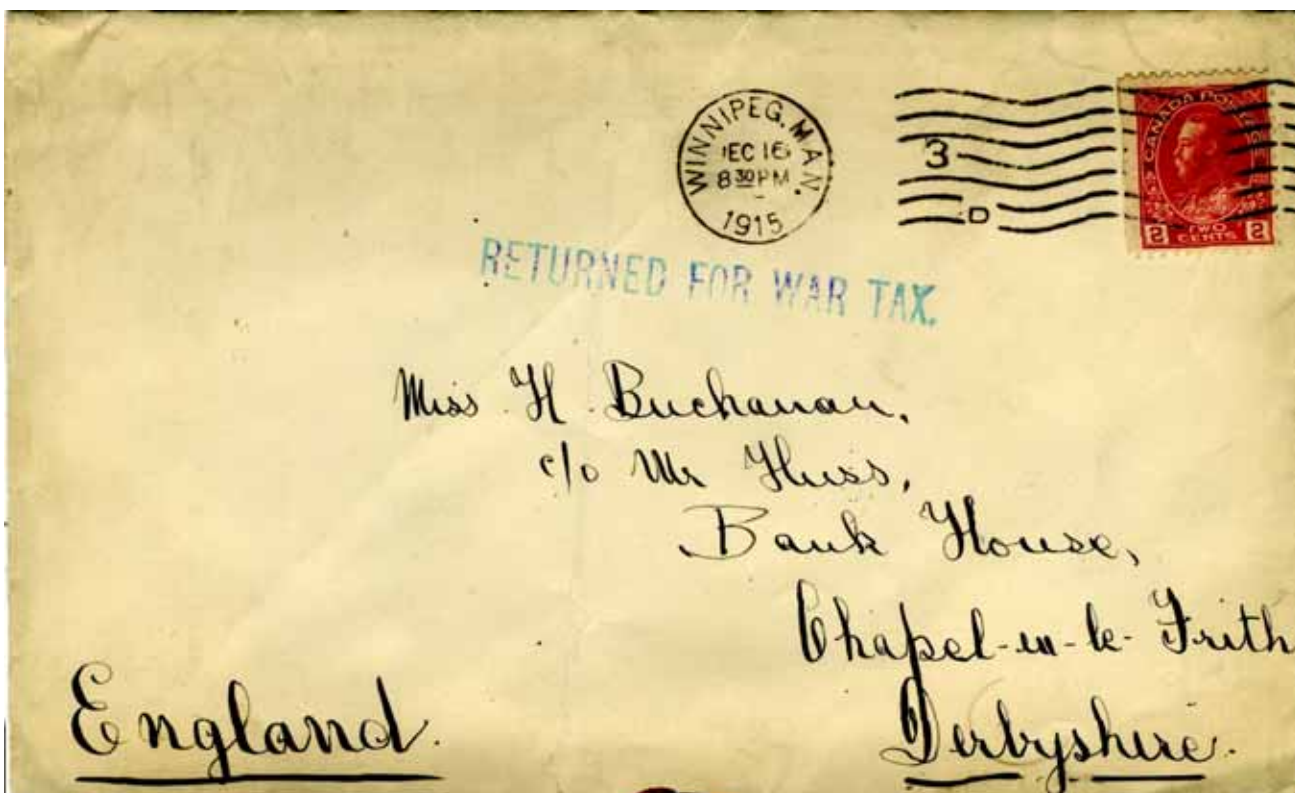 WINNIPEG. MAN.
DEC 16
8 30 PM
1915
3
D
CANADA POSTAGE
2 TWO CENTS 2
RETURNED FOR WAR TAX.
Miss H. Buchanan,
c/o Mr Huss,
Bank House,
Chapel-en-le-Frith
Derbyshire.
England.